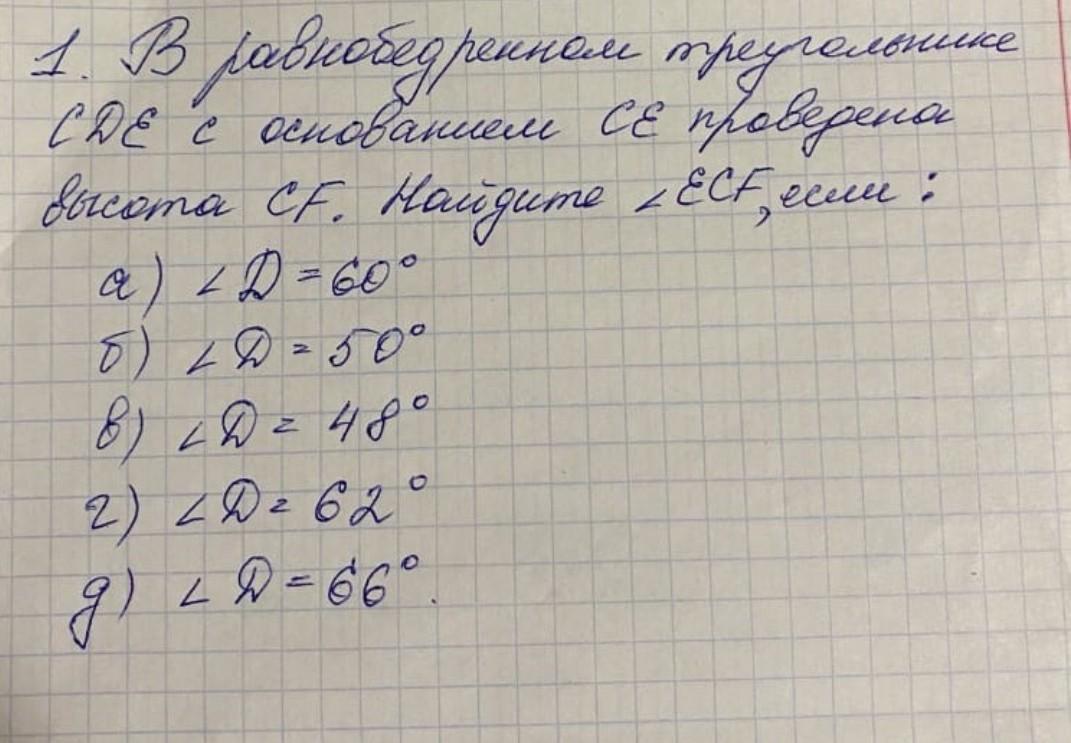 1. В равнобедренном треугольнике
CDE с основанием CE проведена
высота CF. Найдите ∠ECF, если:
а) ∠D = 60°
б) ∠D = 50°
в) ∠D = 48°
г) ∠D = 62°
д) ∠D = 66°.